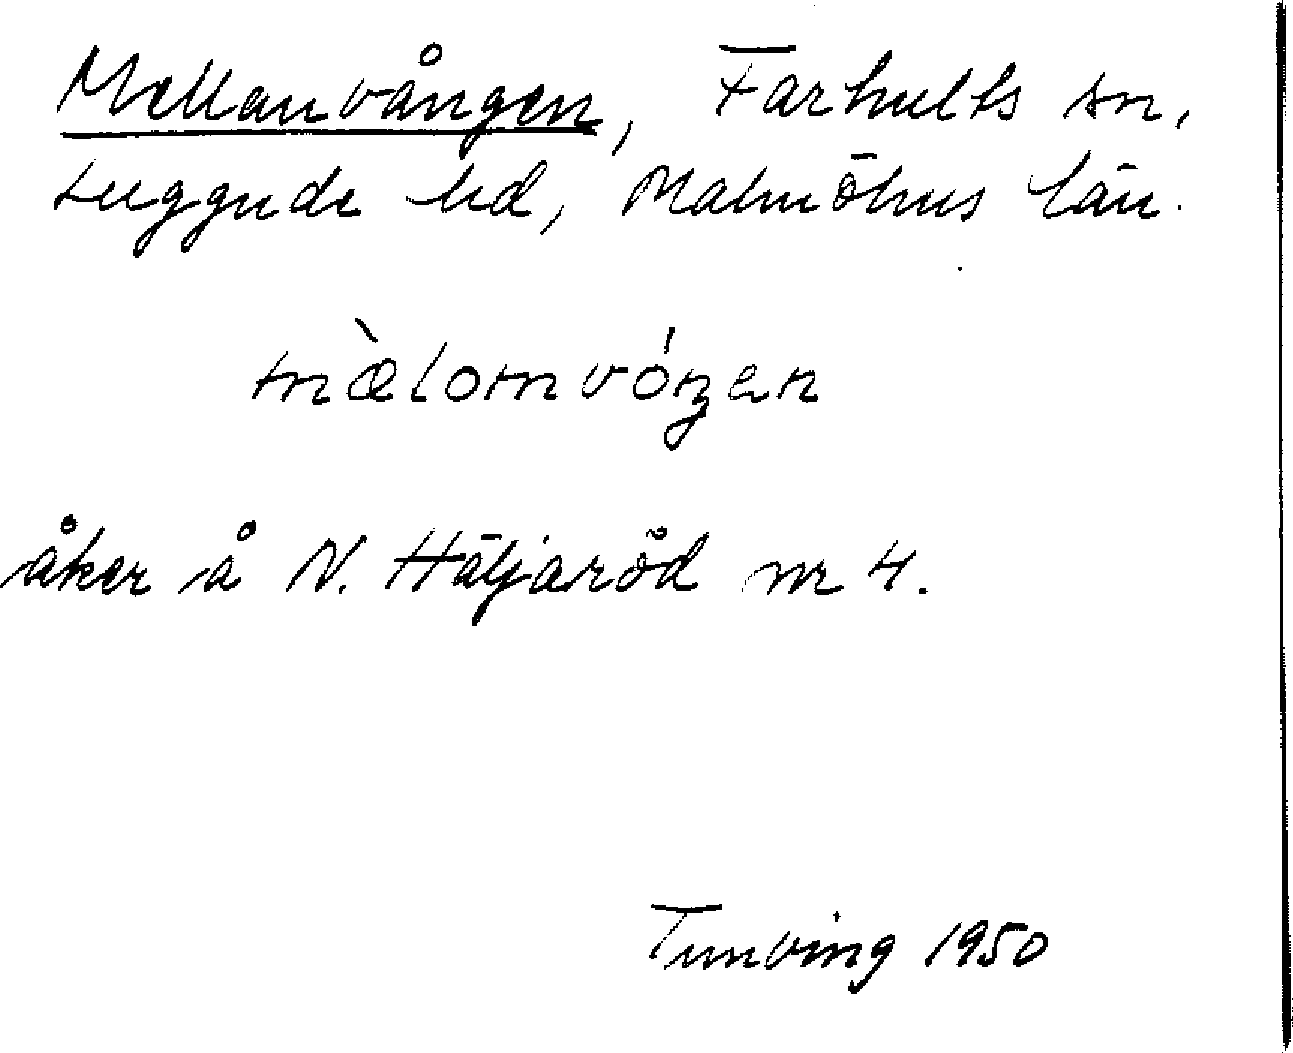 Mellanvången, Farhults sn,
Luggude hd, Malmöhus län.
mæ̀lomvóŋen
åker å N. Häljaröd nr 4.
Tunving 1950